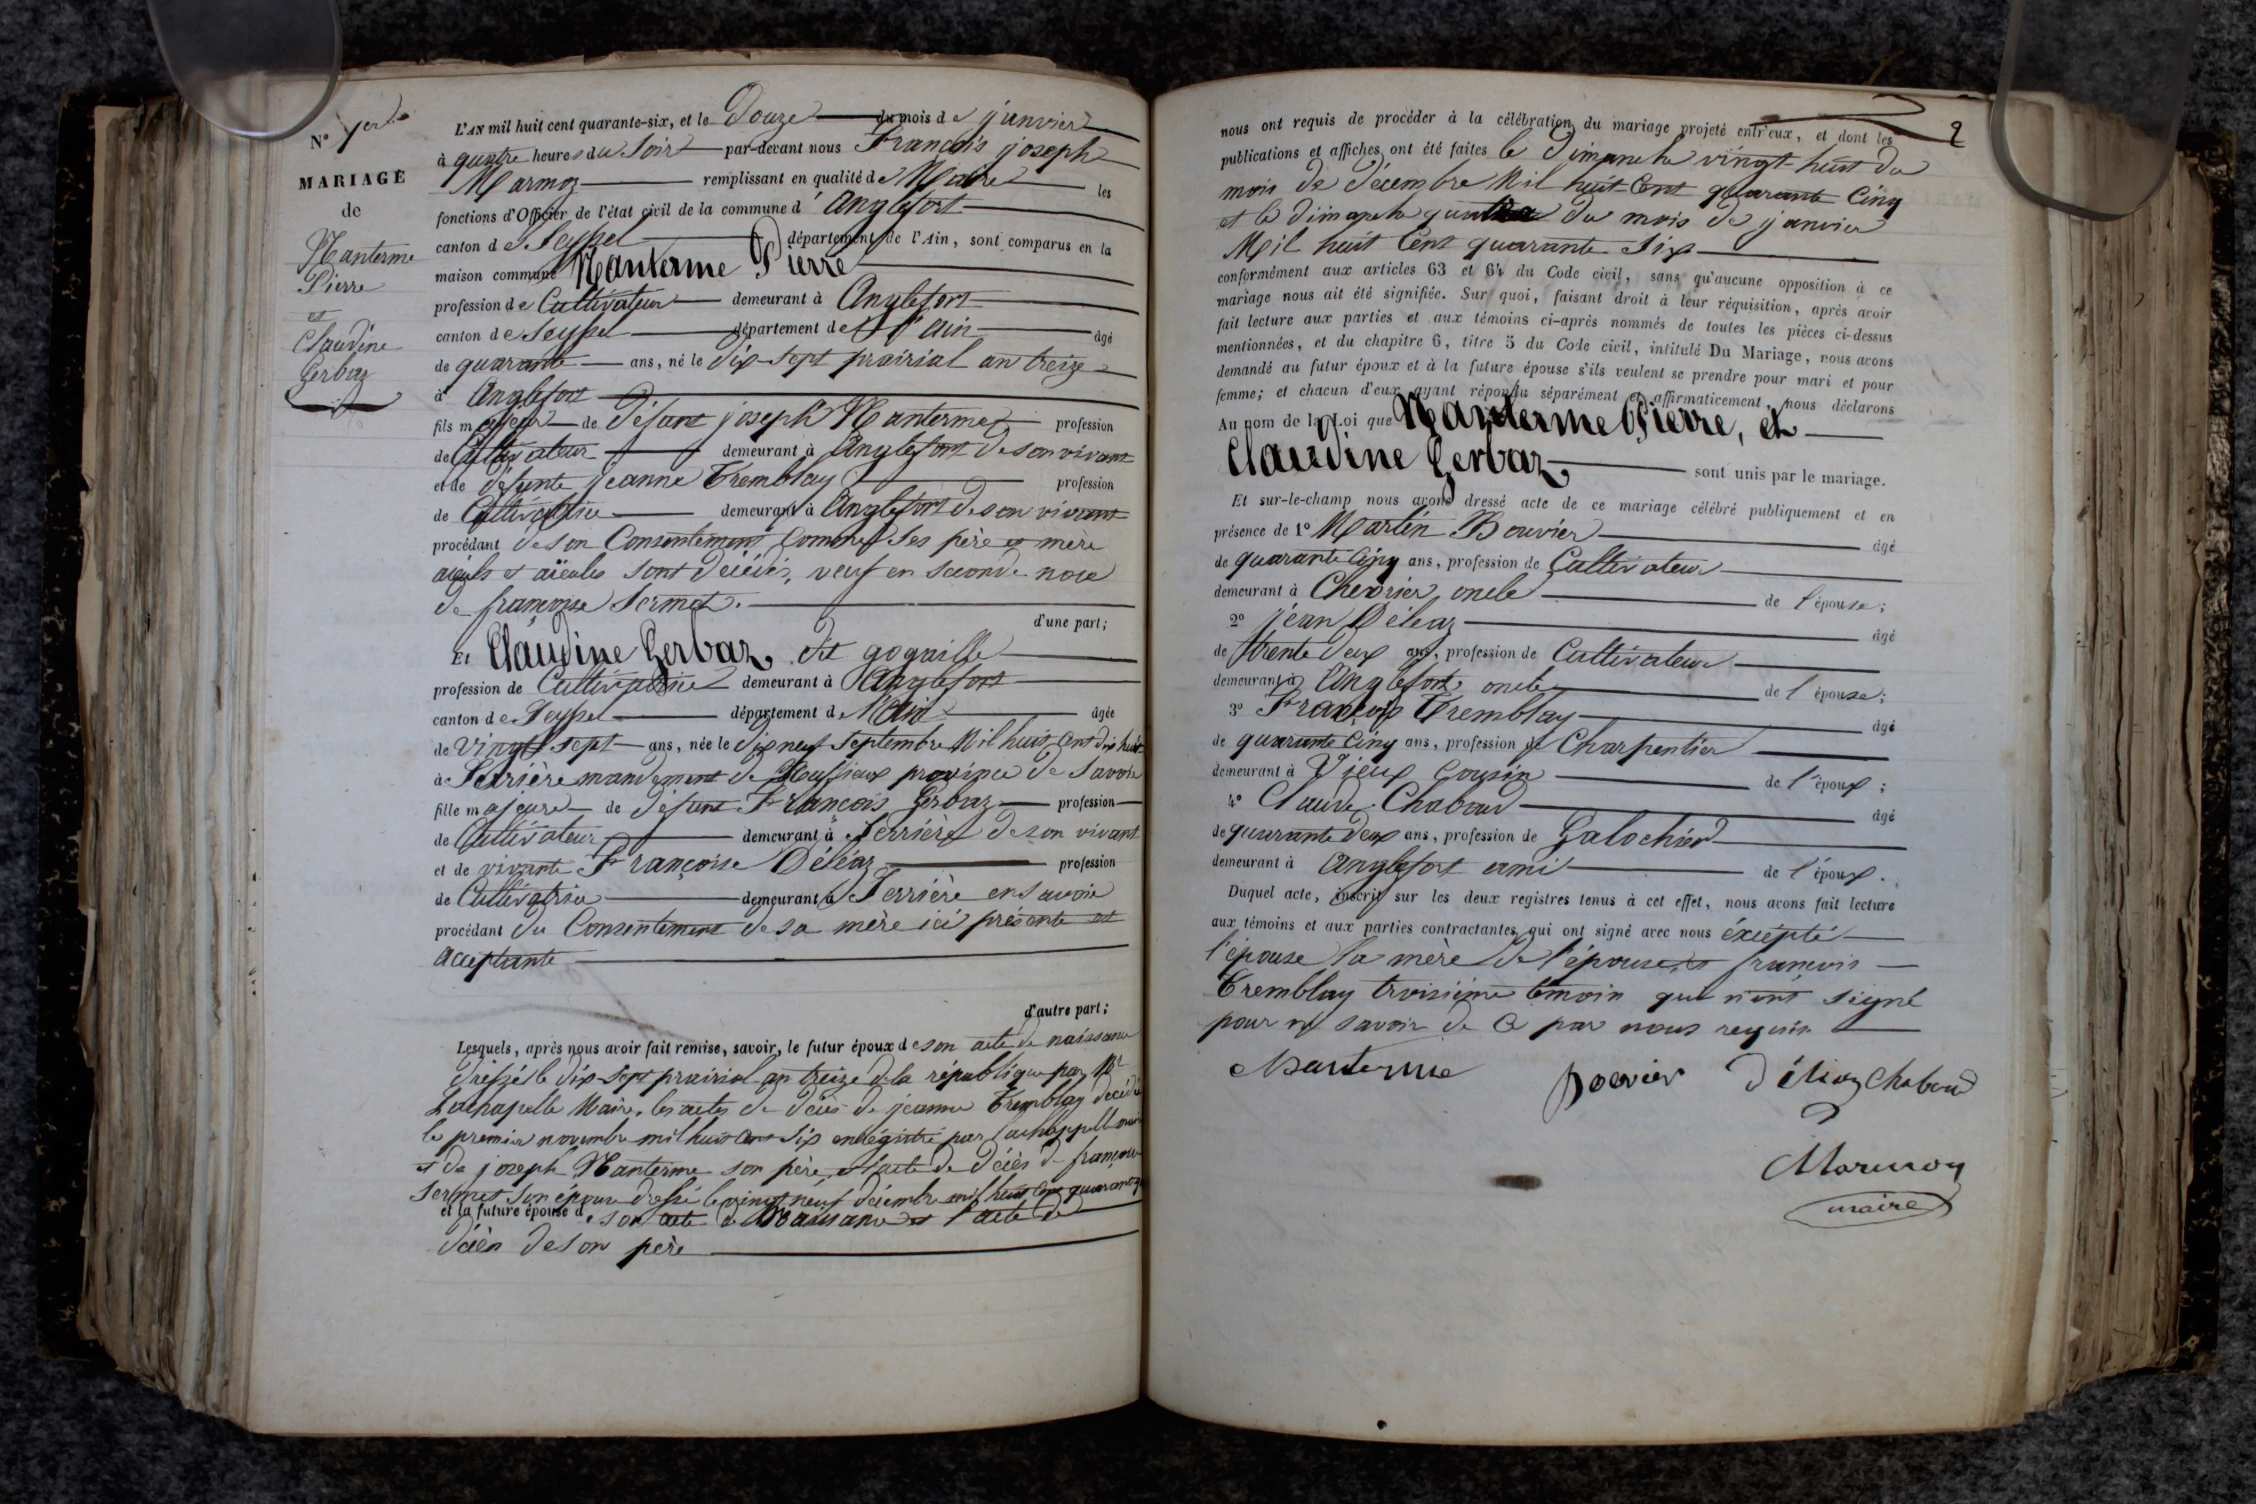 N° 1er
MARIAGE
de
Nanterme
Pierre
et
Claudine
Gerbaz
L'AN mil huit cent quarante-six, et le Douze du mois de janvier
à quatre heures du Soir par-devant nous François joseph
Marmoz remplissant en qualité de Maire les
fonctions d'Officier de l'état civil de la commune d'Anglefort
canton de Seyssel département de l'Ain, sont comparus en la
maison commune Nanterme Pierre
profession de Cultivateur demeurant à Anglefort
canton de Seyssel département de l'ain âgé
de quarante ans, né le dix-sept prairial an treize
à Anglefort
fils majeur de défunt joseph Nanterme profession
de Cultivateur demeurant à Anglefort de son vivant
et de défunte jeanne Tremblay profession
de Cultivatrice demeurant à Anglefort de son vivant
procédant de son Consentement Comme Ses père et mère
aieuls et aïeules sont décédés, veuf en seconde noce
de françoise Sermet.
d'une part;
Et Claudine Gerbaz, dit gogaille
profession de Cultivatrice demeurant à Anglefort
canton de Seyssel département de l'Ain âgée
de vingt sept ans, née le dix neuf Septembre Mil huit Cent dix huit
à Serrière mandement de Ruffieux province de Savoie
fille majeure de défunt François Gerbaz profession
de Cultivateur demeurant à Serrière de son vivant
et de vivante Françoise Déléaz profession
de Cultivatrice demeurant à Serrière en Savoie
procédant du Consentement de sa mère ici présente et
acceptante
d'autre part;
Lesquels, après nous avoir fait remise, savoir, le futur époux de son acte de naissance
dressé le dix-sept prairial an treize de la république par Mr
Lachapelle Maire, les actes de décès de jeanne Tremblay décédée
le premier novembre mil huit Cent Six enregistré par Lachappelle maire
et de joseph Nanterme son père, et l'acte de décès de françoise
Sermet son épouse dressé le vingt neuf décembre mil huit cent quarante
et la future épouse de son acte de Naissance et l'acte de
décès de son père
2
nous ont requis de procéder à la célébration du mariage projeté entr'eux, et dont les
publications et affiches ont été faites le Dimanche vingt-huit du
mois de décembre Mil huit Cent quarante Cinq
et le dimanche quatre du mois de janvier
Mil huit Cent quarante Six
conformément aux articles 63 et 64 du Code civil, sans qu'aucune opposition à ce
mariage nous ait été signifiée. Sur quoi, faisant droit à leur réquisition, après avoir
fait lecture aux parties et aux témoins ci-après nommés de toutes les pièces ci-dessus
mentionnées, et du chapitre 6, titre 5 du Code civil, intitulé Du Mariage, nous avons
demandé au futur époux et à la future épouse s'ils veulent se prendre pour mari et pour
femme; et chacun d'eux ayant répondu séparément et affirmativement, nous déclarons
Au nom de la Loi que Nanterme Pierre, et
Claudine Gerbaz, sont unis par le mariage.
Et sur-le-champ nous avons dressé acte de ce mariage célébré publiquement et en
présence de 1° Martin Bouvier âgé
de quarante Cinq ans, profession de Cultivateur
demeurant à Chevrier, oncle de l'épouse;
2° jean Déléaz âgé
de trente deux ans, profession de Cultivateur
demeurant à Anglefort, oncle de l'épouse;
3° François Tremblay âgé
de quarante Cinq ans, profession de Charpentier
demeurant à Vieux Cousin de l'époux;
4° Claude Chaboud âgé
de quarante deux ans, profession de Galochier
demeurant à Anglefort ami de l'époux.
Duquel acte, inscrit sur les deux registres tenus à cet effet, nous avons fait lecture
aux témoins et aux parties contractantes, qui ont signé avec nous éxcépté
l'épouse la mère de l'épouse et françois
Tremblay troisième témoin qui n'ont signé
pour ne savoir de Ce par nous requis
Nanterme Bouvier Déléaz Chaboud
Marmoz
maire